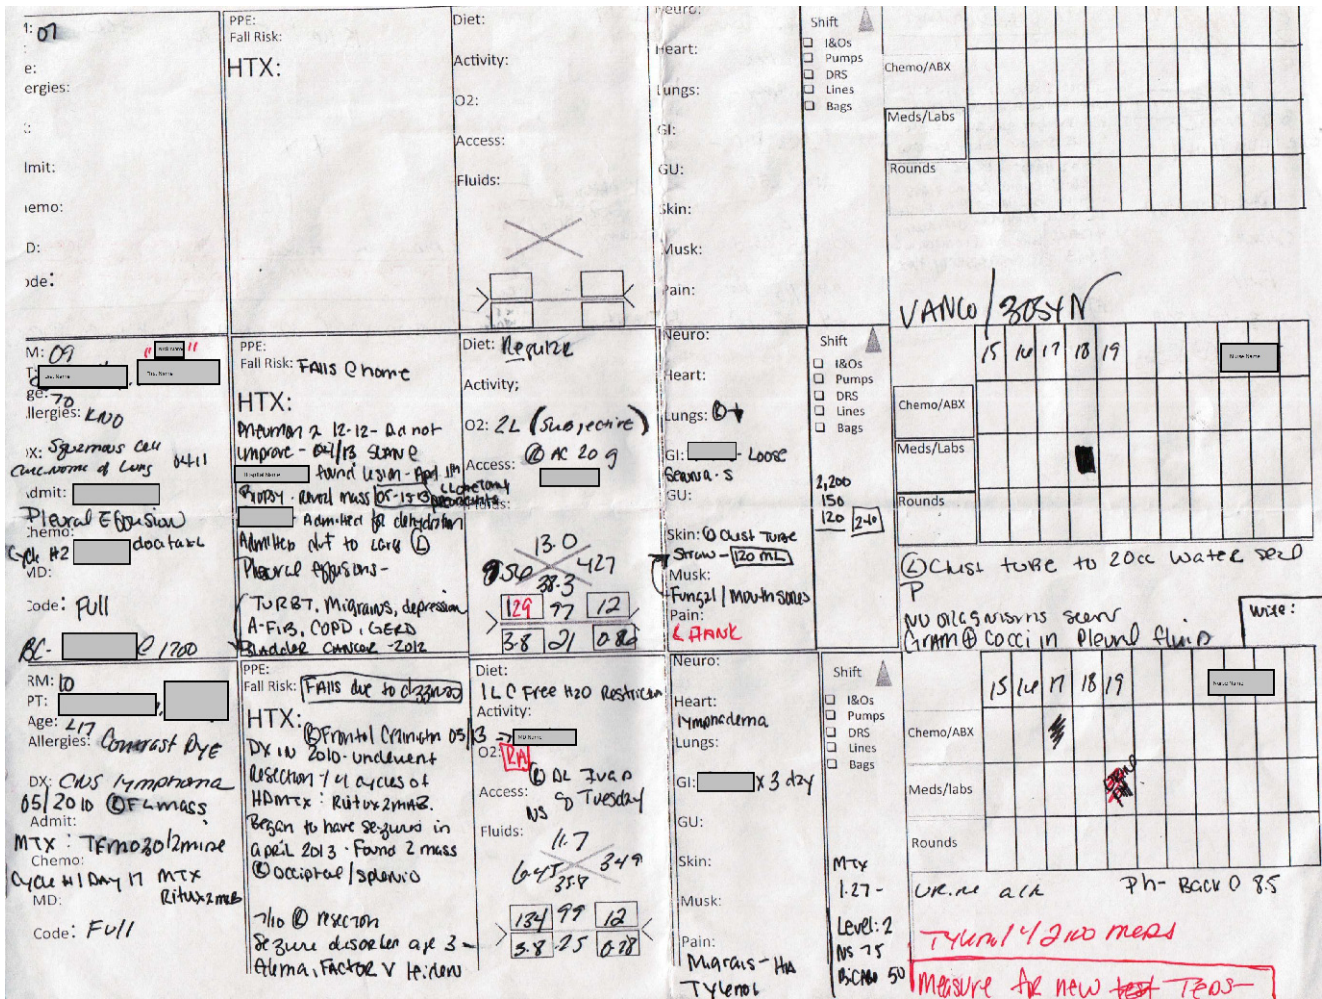 07
PPE:
Fall Risk:
HTX:
Diet:
Activity:
O2:
Access:
Fluids:
Neuro:
Heart:
Lungs:
GI:
GU:
Skin:
Musk:
Pain:
Shift
I&Os
Pumps
DRS
Lines
Bags
Chemo/ABX
Meds/Labs
Rounds
e:
ergies:
mit:
emo:
D:
ode:
VANCO/ZOSYN
M: 09
ge: 70
llergies: KNO
X: Squamous cell
carcinoma of Lung 04/11
dmit:
Pleural Effusion
hemo:
Cycle #2 docitaxel
MD:
Code: Full
BC- @ 1700
PPE:
Fall Risk: FAlls @ home
HTX:
Pneumon 2 12-12- Did not
improve - 04/13
found lesion - April 11th
Biopsy. Renal mass 05-15-13
Admitted for dehydration
Admitted to Large (L)
Pleural effusions-
TURBT, Migrains, depression
A-FIB, COPD, GERD
BLADDER CANCER -2012
Diet: Regular
Activity;
O2: 2L (Subjective)
Access: AC 20 g
Fluids:
13.0
427
38.3
129 97 12
3.8 21 0.86
Neuro:
Heart:
Lungs:
GI: - LOOSE
Senna-S
GU:
Skin: Chest TUBE
Straw - 120 ML
Musk:
Fungal / Mouth sores
Pain:
FLANK
Shift
I&Os
Pumps
DRS
Lines
Bags
2,200
150
120 240
15 16 17 18 19
Chemo/ABX
Meds/Labs
Rounds
(L) Chest tube to 20cc water seal
P
NO organisms seen
GRAM + cocci in Pleural fluid
Wife:
RM: 10
PT:
Age: 47
Allergies: Contrast Dye
DX: CNS lymphoma
05/2010 (R) F4mass
Admit:
MTX: TEMOZOlomine
Chemo:
Cycle #1 Day 17 MTX
MD: Ritux2mab
Code: Full
PPE:
Fall Risk: FAlls due to dizziness
HTX:
(R) Frontal 05/13
DX IN
2010 - underwent
Resection / 4 cycles of
HDMTX: Ritux2mab.
Began to have seizures in
april 2013 - Found 2 mass
occipital / splenio
7/10 (R) resection
Seizure disorder age 3-
FACTOR V leiden
Diet:
1 L C Free H2O Restriction
Activity:
O2: RA
Access: NS @ Tuesday
Fluids:
11.7
645 349
35.8
134 99 12
3.8 25 0.78
Neuro:
Heart:
lymphadema
Lungs:
GI: x 3 day
GU:
Skin:
Musk:
Pain:
Migrais - HA
Tylenol
Shift
I&Os
Pumps
DRS
Lines
Bags
MTX
1.27 -
Level: 2
NS 75
BiCARB 50
15 16 17 18 19
Chemo/ABX
Meds/labs
Rounds
Urine Ph- Back 0 8.5
Tylenol
Measure for new test TEDS-